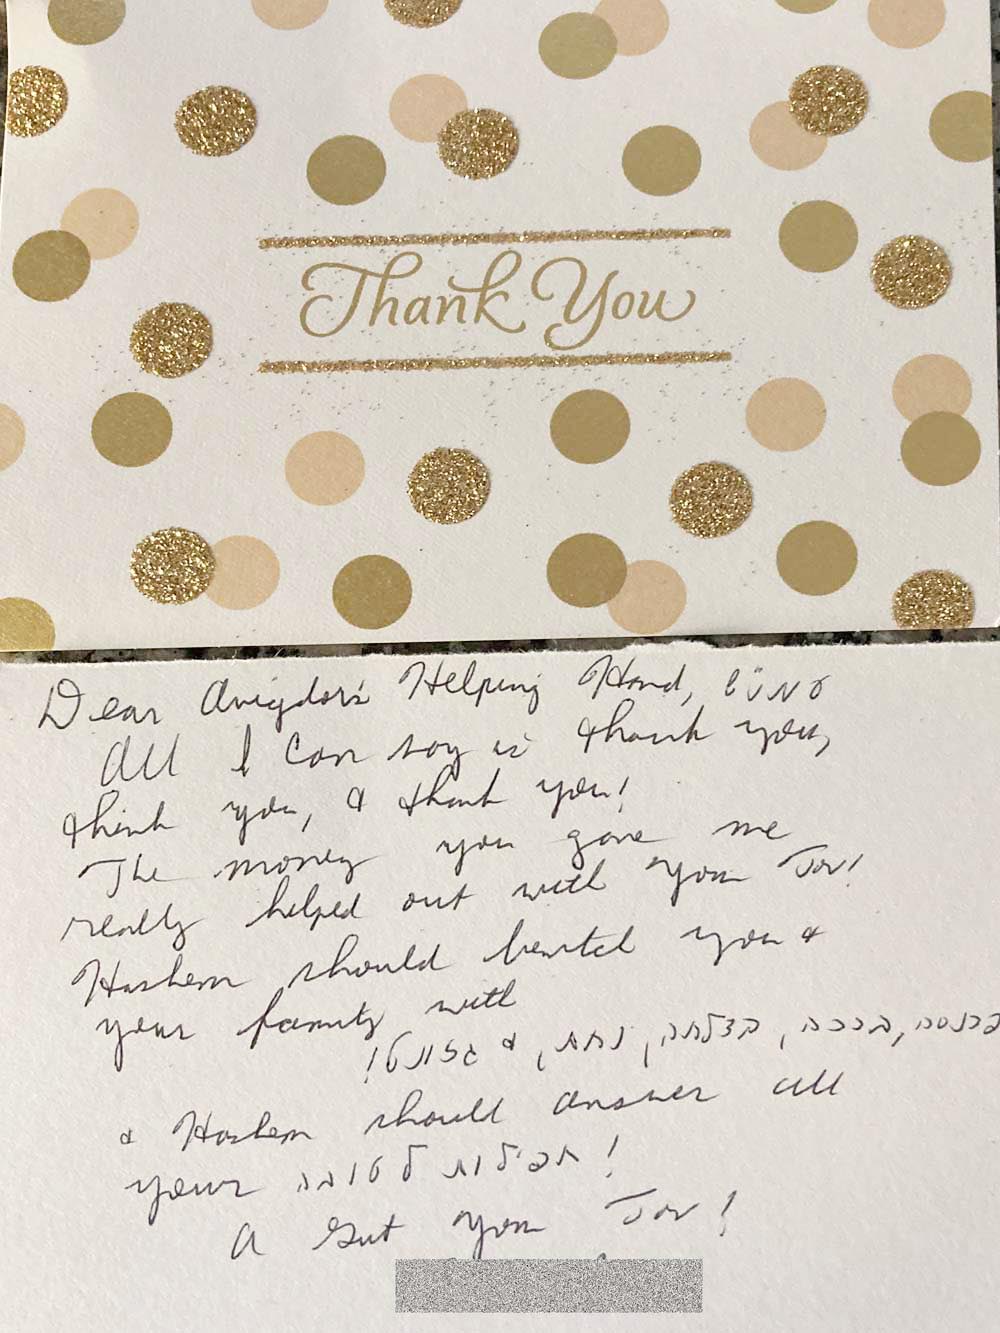 Thank You
Dear Avigdor's Helping Hand,
All I can say is thank you,
thank you, & thank you!
The money you gave me
really helped out with Yom Tov!
Hashem should bentch you &
your family with
פרנסה, ברכה, הצלחה, נחת, & געזונט!
& Hashem should answer all
your תפילות לטובה!
A Gut Yom Tov!